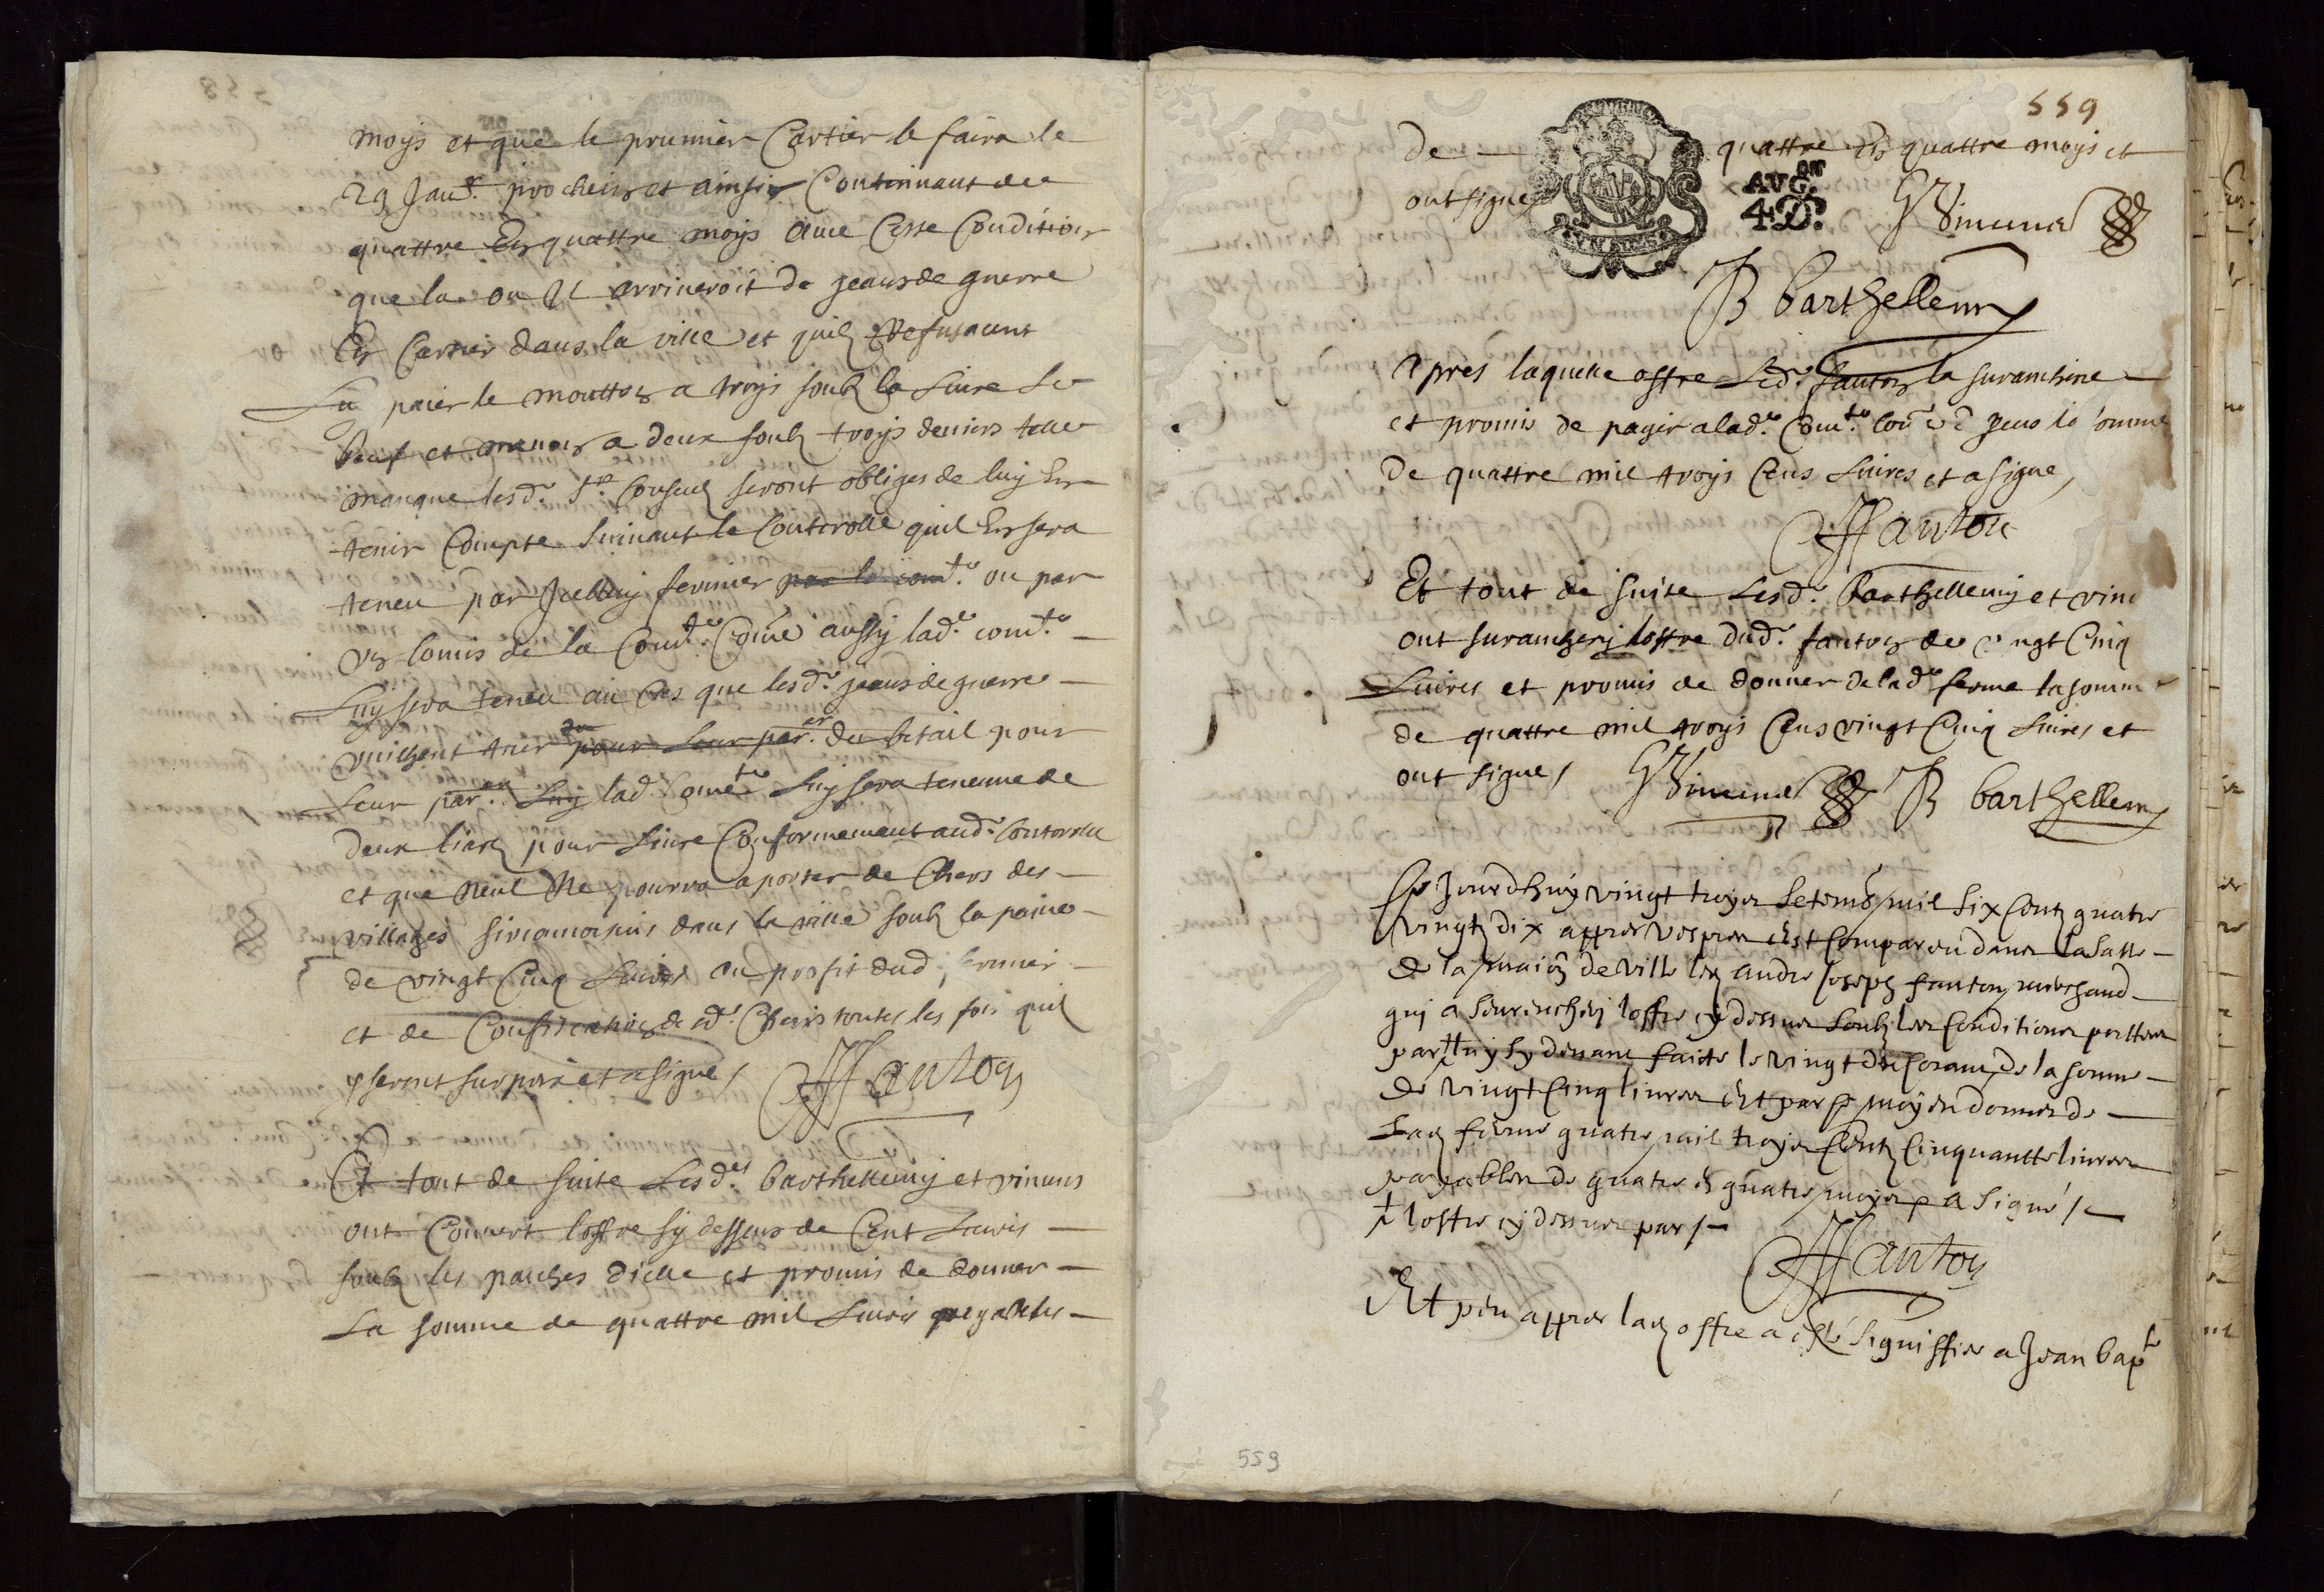 moys et que le prumier Cartier le faira le
29 Janr. prochein et ainsin Continuant de
quattre En quattre moys avec Cette Condition
que la ou Il arriveroit de jeans de guerre
En Cartier dans la ville et quilz Refusacent
Luy paier le moutton a troys soulz la Livre Le
beuf et a deux soulz troys deniers telle
manque lesd. Srs Conseulz seront obliges de luy En
tenir Compte suivant le Conterolle quil En sera
teneu par Icelluy fermier par la comte. ou par
Un comis de la Comte. Come aussy lade. comte.
Luy sera teneu au Cas que lesd. jeans de guerre
pour Leur parer. du betail pour
Leur parer. Luy lade Comte Luy sera teneue de
deux liardz pour Livre Conformement aud. Conterolle
et que Neul Ne pourra aporter de Chers des
villages sirconvoisins dans la ville soulz la paine
de vingt Cinq Livres au profit dud. fermier
et de Confiscation desd. Chers toutes les fois quil
y seront surpris et a signe /
Fanton
Et tout de suite Lesd. barthellemy et vinuns
ont Couvert loffre sy dessus de Cent Livres
soulz les paches dicelle et promis de donner
La somme de quattre mil Livres payables
559
de quattre En quattre moys et
ont signe
AVGon
4 D.
barthellemy
Apres laquelle offre Led. fanton la suranchere
et promis de payer a lade. Comte. la somme
de quattre mil troys Cens Livres et a signe /
Fanton
Et tout de suite Lesd. barthellemy et vinu
ont surancherj loffre dud. fanton de vingt Cinq
Livres et promis de donner de lade ferme la somme
de quattre mil troys Cens vingt Cinq Livres et
ont signe /
barthellemy
Ce Jourdhuy vingt troyes setembre mil six Centz quatre
vingtz dix appres vespres Est Compareu dans la salle
de la maion de ville sr andre Joseph fanton marchand
quj a seurencherj loffre cy dessus soulz les Conditions porttees
par luy sy devant faicte le vingt du Corant, de la somme
de vingt Cinq livres Et par ce moyen donner de
Lad ferme quatre mil troyes Centz Cinquantte livres
payables de quatre En quatre moyes a signé /
+ loffre cy dessus par /
Fanton
Et peu appres lad offre a esté signiffiee a Jean bapte
559